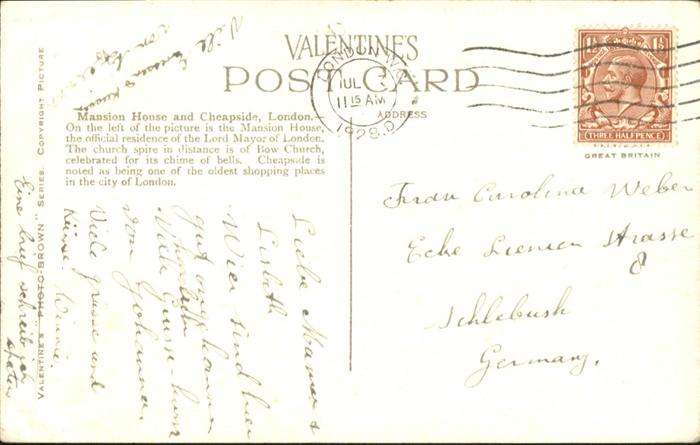 VALENTINE'S
POST CARD
Mansion House and Cheapside, London.—
On the left of the picture is the Mansion House,
the official residence of the Lord Mayor of London.
The church spire in distance is of Bow Church,
celebrated for its chime of bells. Cheapside is
noted as being one of the oldest shopping places
in the city of London.
VALENTINE'S "PHOTO-BROWN" SERIES. COPYRIGHT PICTURE
ADDRESS
LONDON
JUL
11 15 AM
1928
1½ 1½
THREE HALFPENCE
GREAT BRITAIN
Frau Carolina Weber
Ecke Strasse
8
Schlebush
Germany.
Liebe Mama &
Lisbeth
Wier sind hier
gut
Viele Grüsse
von Johanna.
Viele grüsse und
Küsse Winnie
Eine brief schreib ich
später